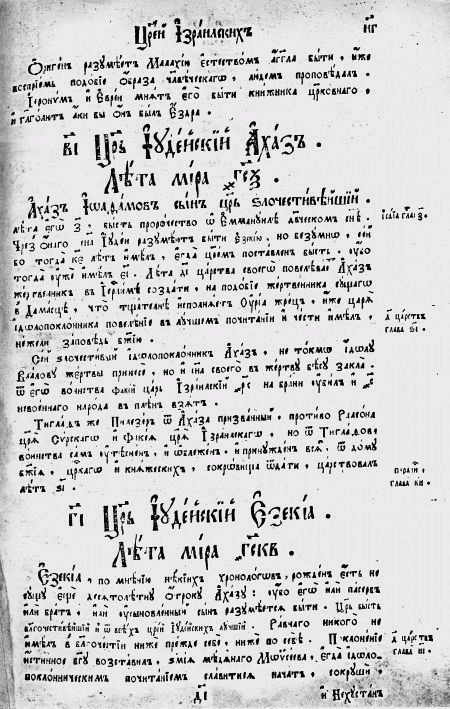 Црей Ізраилскихъ
Оригенъ разумѣетъ Малахію естествомъ аггла быти, иже
воспріемъ подобіе образа члвѣческагѡ, людемъ проповѣдалъ.
Іеронѵмъ и Евреи мнятъ его быти книжника црковнаго,
и глаголютъ аки бы онъ былъ Ездра.
ві Црь Іудейскій Ахазъ.
Лѣта міра
Ахазъ Іѡаѳамовъ сынъ царь ѕлочестивѣйшій.
лѣта егѡ з҃. бысть пророчество ѡ Еммануилѣ дв҃ческом сн҃ѣ.
Чрез онаго сна Іудеи разумѣютъ быти Езекію, но безумнѡ, сей
бо тогда к҃е лѣтъ имѣлъ, егда цремъ поставленъ бысть, убо
тогда уже имѣлъ ѳ҃і. Лѣта ді царства своегѡ повелѣваетъ Ахазъ
жертвенник въ Іерлимѣ создати, на подобіе жертвенника бу҃щагѡ
в Дамасцѣ, что тщателнѣ исполняетъ Уріа жрецъ, иже царя
ідолопоклонника повелѣніе въ лучшем почитаніи и чести имѣлъ,
нежели заповѣдь бжію.
Сей ѕлочестивый ідолопоклонникъ Ахазъ, не токмѡ ідолу
Ваалову жертвы принесе, но и сна своего в жертву бѣсу закла.
ѿ егѡ воинства Факій царь Ізраилскій на брани убилъ и
невоеннаго народа въ плѣнъ взятъ.
Тиглаѳъ же Пилезеръ ѿ Ахаза призванный, противо Раасона
црѧ Сурскагѡ и Фикеа црѧ Ізраилскагѡ, но ѿ Тиглаѳове
воинства сам утѣсненъ, и обложенъ, и принужденъ вся, ѿ дому
бжія, црскагѡ и княжескихъ, сокровища ѿдати, царствовалъ
лѣтъ ѕі.
Ісаіа глава з
д царствъ
глава ѕі
п҃рдій
глава кв
гі Црь Іудейскій Езекіа.
Лѣта міра
Езекіа, по мнѣнію нѣкіихъ хронологѡвъ, рожденъ есть не
сущу еще десятолѣтну отроку Ахазу: убо егѡ или пасерб
или братъ, или усыновленный сынъ разумѣется быти. Црь бысть
благочестивѣйшій и ѿ всѣхъ црей Іудейскихъ лучшій. Равнаго никого не
имѣлъ в благочестіи ниже прежде себе, ниже по себѣ. Поклоненіе
истинное бгу возставилъ, змія мѣдянаго Моусеова, егда ідоло-
поклонническимъ почитаніем славитися начатъ, сокруши,
д царствъ
глава ні
ді
и Нехустан